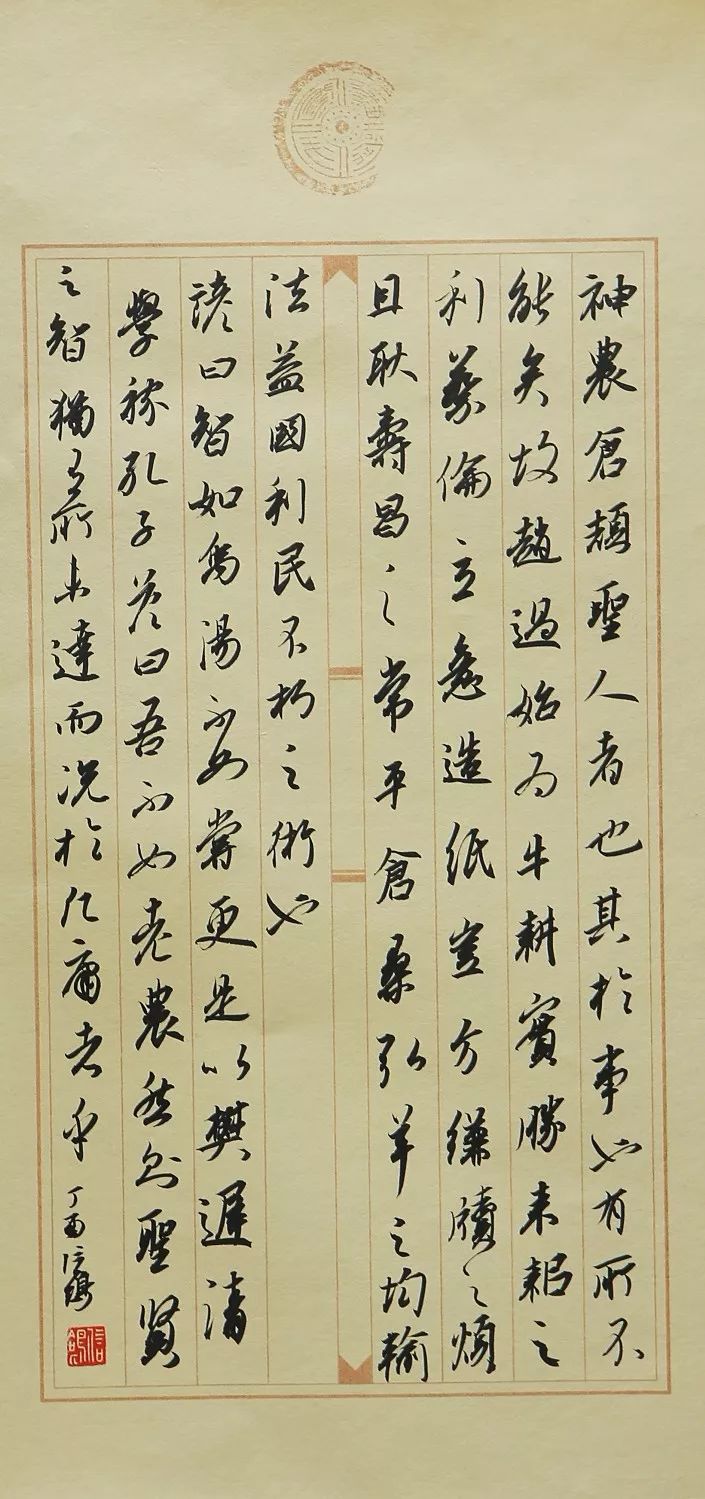 神農倉頡聖人者也其於事也有所不
能矣故趙過始为牛耕實勝耒耜之
利蔡倫立意造紙豈方縑牘之煩
且耿壽昌之常平倉桑弘羊之均輸
法益國利民不朽之術也
諺曰智如禹湯不如嘗更是以樊遲請
學稼孔子答曰吾不如老農然則聖賢
之智猶有所未達而况於凡庸者乎
丁酉信
信